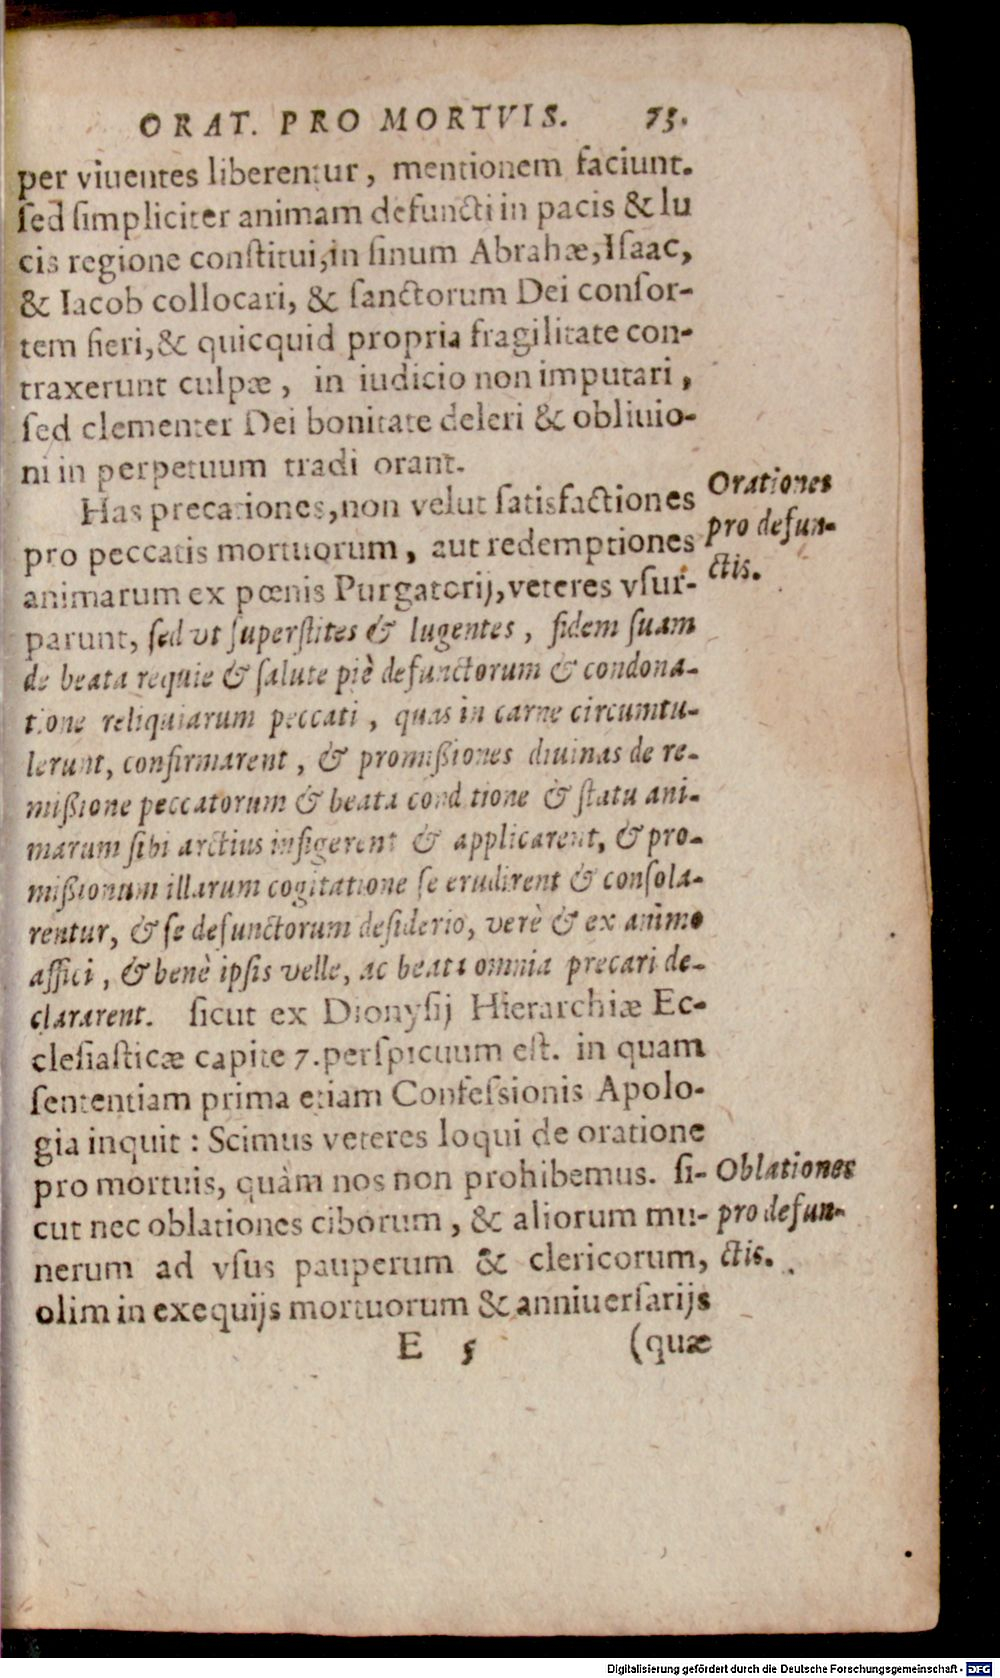 ORAT. PRO MORTVIS. 73.
per viuentes liberentur, mentionem faciunt.
sed simpliciter animam defuncti in pacis & lu
cis regione constitui, in sinum Abrahæ, Isaac,
& Iacob collocari, & sanctorum Dei consor-
tem fieri, & quicquid propria fragilitate con-
traxerunt culpæ, in iudicio non imputari,
sed clementer Dei bonitate deleri & obliuio-
ni in perpetuum tradi orant.
Has precationes, non velut satisfactiones
pro peccatis mortuorum, aut redemptiones
animarum ex pœnis Purgatorij, veteres vsur-
parunt, sed vt superstites & lugentes, fidem suam
de beata requie & salute piè defunctorum & condona-
tione reliquiarum peccati, quas in carne circumtu-
lerunt, confirmarent, & promißiones diuinas de re-
mißione peccatorum & beata conditione & statu ani-
marum sibi arctius insigerent & applicarent, & pro-
mißionum illarum cogitatione se erudirent & consola-
rentur, & se defunctorum desiderio, verè & ex animo
affici, & benè ipsis velle, ac beata omnia precari de-
clararent. sicut ex Dionysij Hierarchiæ Ec-
clesiasticæ capite 7. perspicuum est. in quam
sententiam prima etiam Confessionis Apolo-
gia inquit: Scimus veteres loqui de oratione
pro mortuis, quàm nos non prohibemus. si-
cut nec oblationes ciborum, & aliorum mu-
nerum ad vsus pauperum & clericorum,
olim in exequijs mortuorum & anniuersarijs
E 5 (quæ
Orationes
pro defun-
ctis.
Oblationes
pro defun-
ctis.
Digitalisierung gefördert durch die Deutsche Forschungsgemeinschaft - DFG